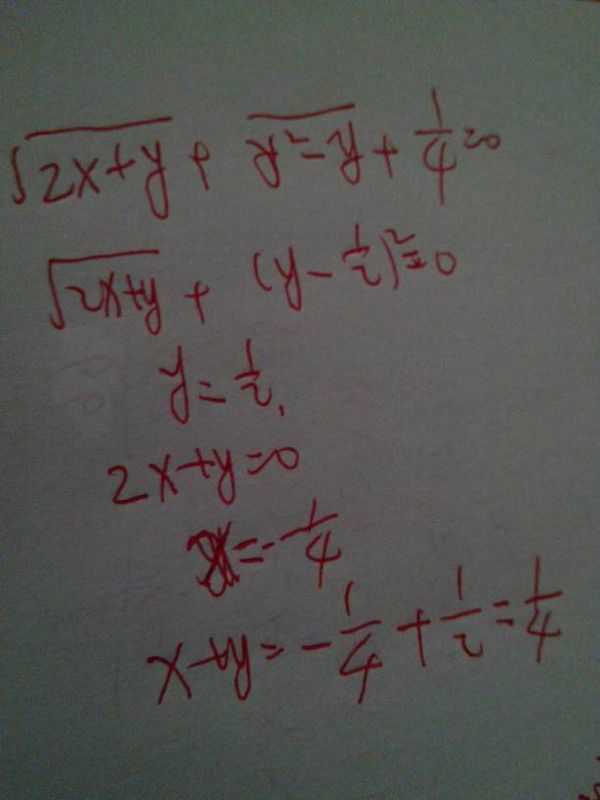 √(2x+y) + y²-y + 1/4 =0
√(2x+y) + (y-1/2)²=0
y=1/2,
2x+y=0
x=-1/4
x+y=-1/4+1/2=1/4